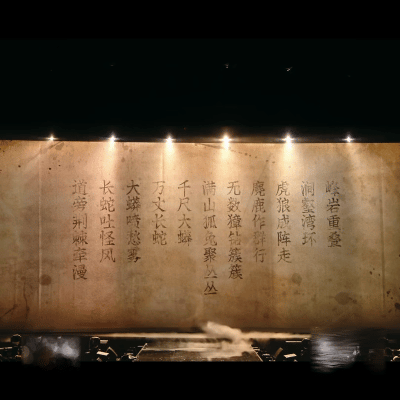 峰岩重叠
涧壑湾环
虎狼成阵走
麂鹿作群行
无数獐钻簇簇
满山狐兔聚丛丛
千尺大蟒
万丈长蛇
大蟒喷愁雾
长蛇吐怪风
道旁荆棘牵漫